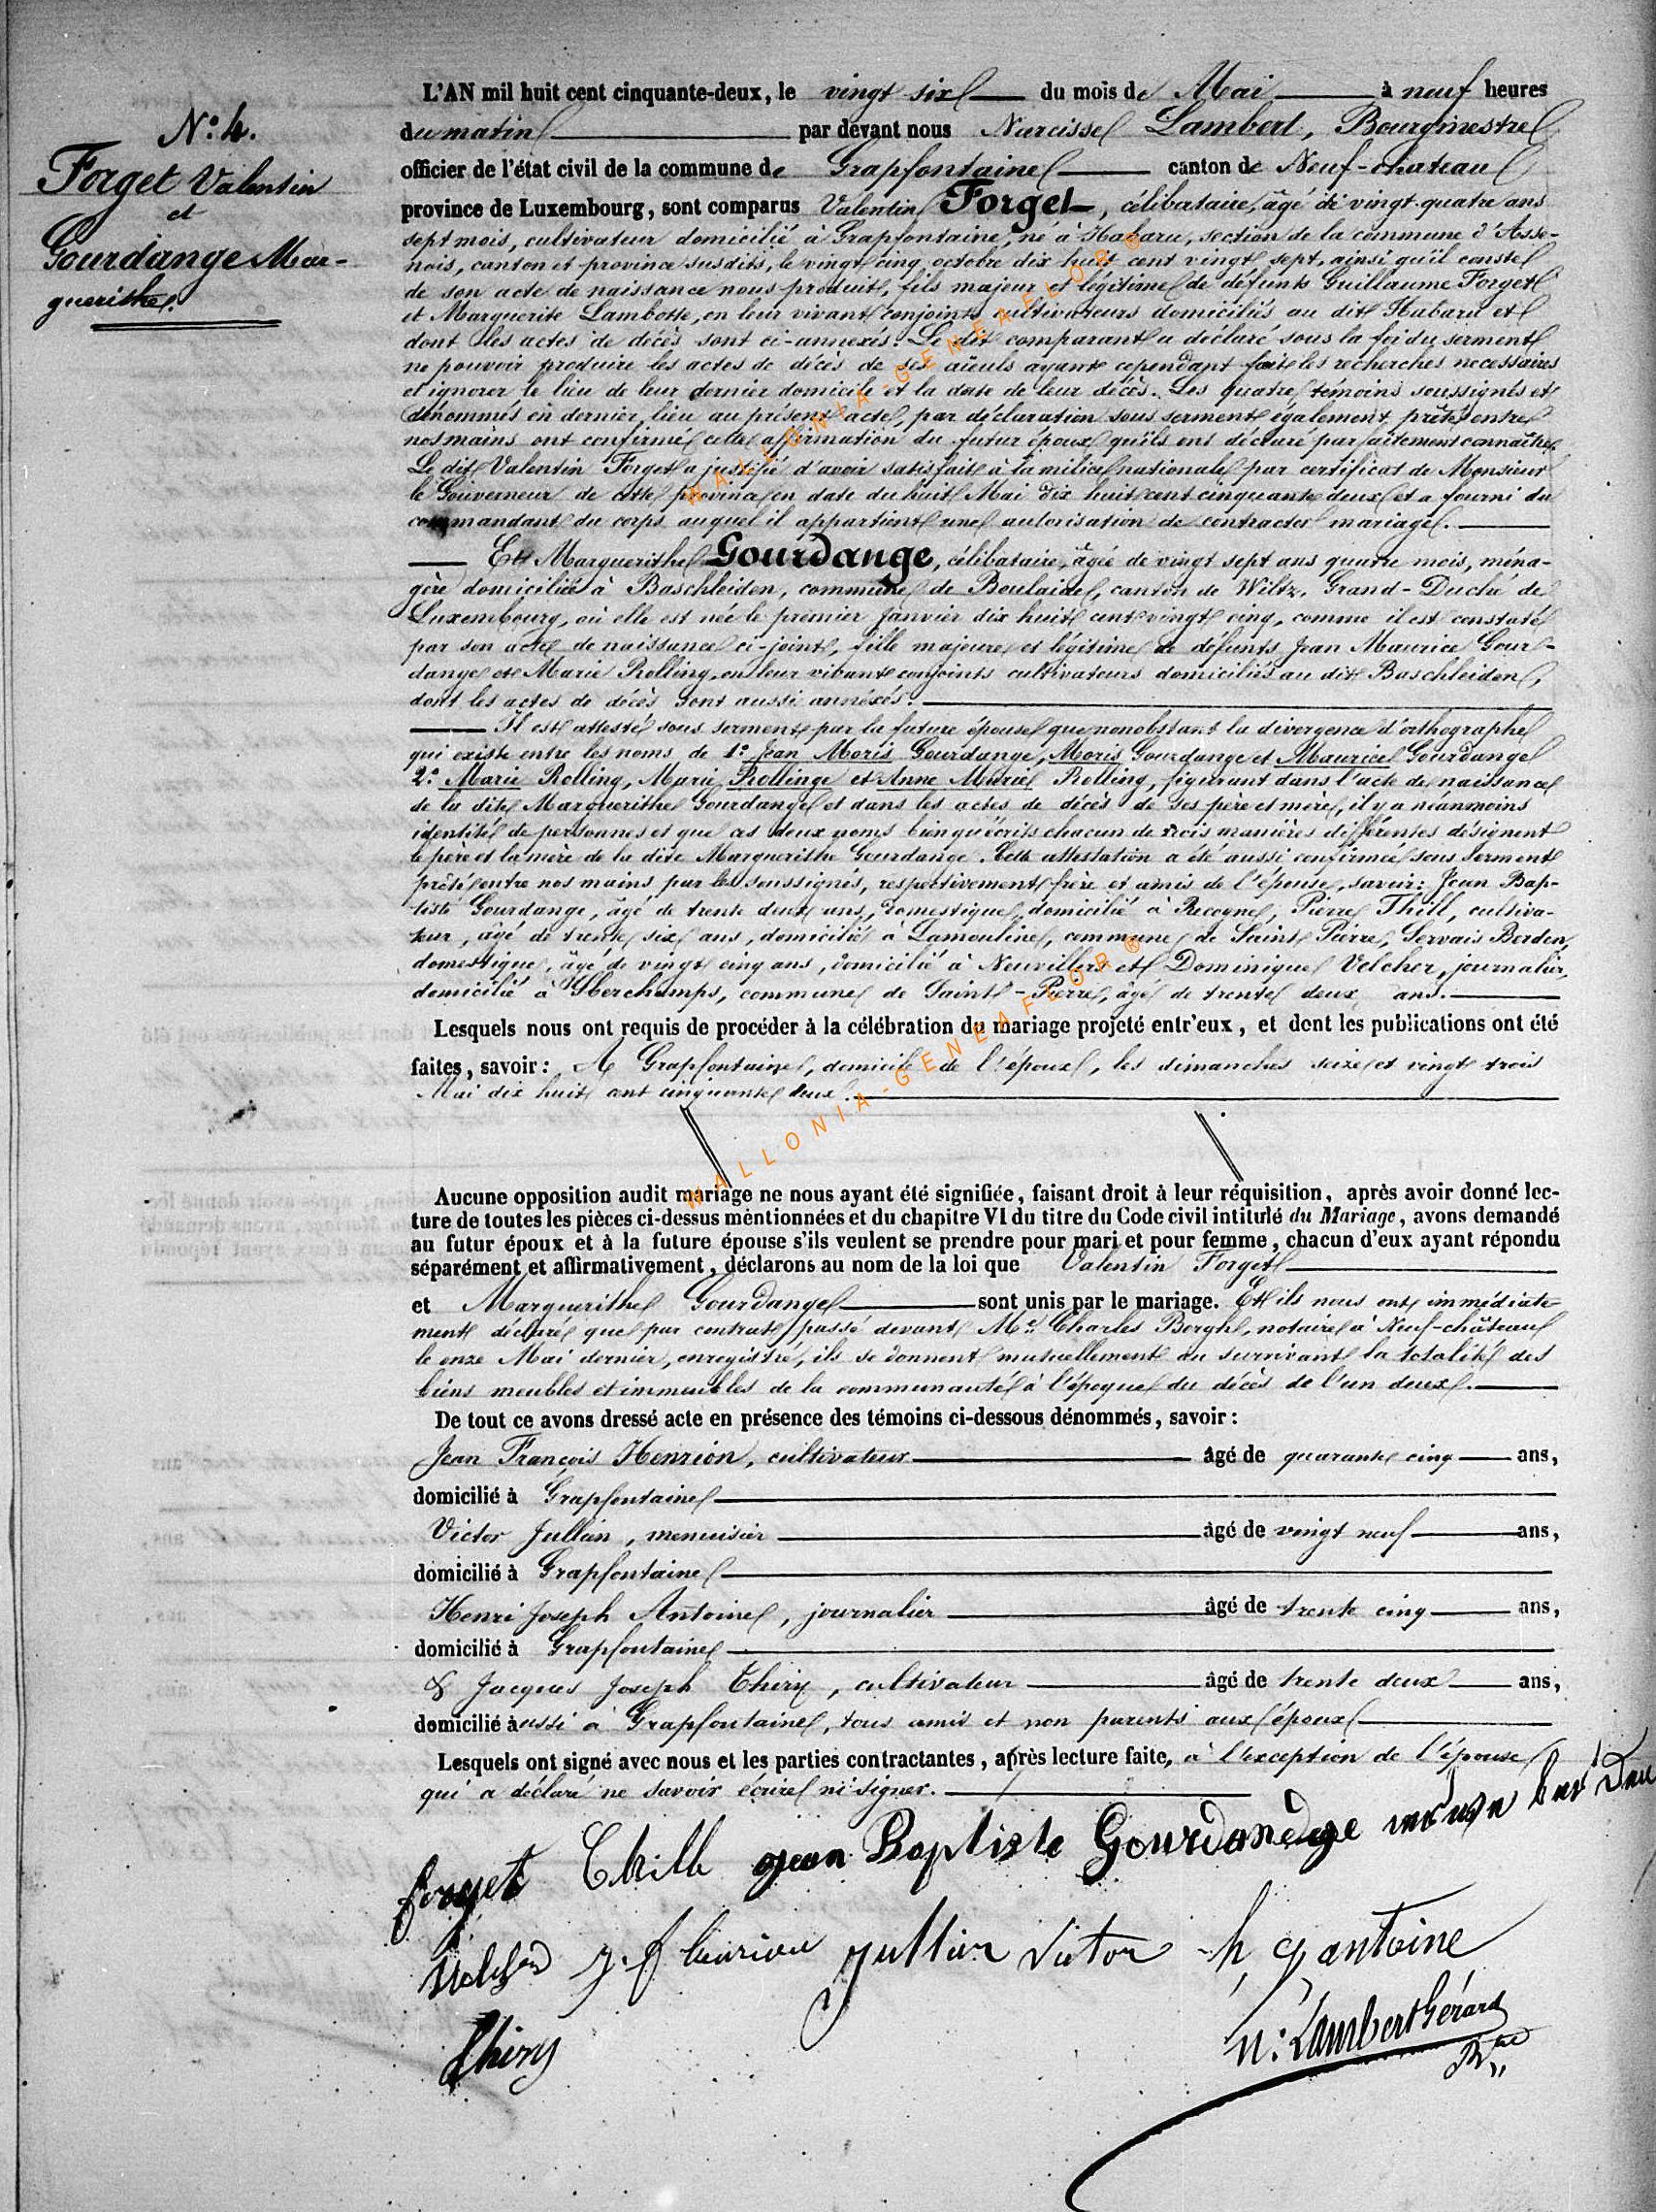 N.o 4.
Forget Valentin
et
Gourdange Mar-
guerithe.
L'AN mil huit cent cinquante-deux, le vingt six du mois de Mai à neuf heures
du matin par devant nous Narcisse Lambert, Bourgmestre
officier de l'état civil de la commune de Grapfontaine canton de Neuf-chateau
province de Luxembourg, sont comparus Valentin Forget, célibataire, âgé de vingt-quatre ans
sept mois, cultivateur domicilié à Grapfontaine, né à Habaru, section de la commune d'Asse-
nois, canton et province susdits, le vingt cinq octobre dix huit cent vingt sept, ainsi qu'il conste
de son acte de naissance nous produit, fils majeur et légitime de défunts Guillaume Forget
et Marguerite Lambotte, en leur vivant conjoints cultivateurs domiciliés au dit Habaru et
dont les actes de décès sont ci-annexés. Le dit comparant a déclaré sous la foi du serment
ne pouvoir produire les actes de décès de ses aïeuls ayant cependant fait les recherches necessaires
et ignorer le lieu de leur dernier domicile et la date de leur décès. Les quatre témoins soussignés et
dénommés en dernier lieu au présent acte, par déclaration sous serment également prêté entre
nos mains ont confirmé cette affirmation du futur époux qu'ils ont déclaré parfaitement connaître.
Le dit Valentin Forget a justifié d'avoir satisfait à la milice nationale par certificat de Monsieur
le Gouverneur de cette province en date du huit Mai dix huit cent cinquante deux et a fourni du
commandant du corps auquel il appartient une autorisation de contracter mariage.
Et Marguerithe Gourdange, célibataire, âgée de vingt sept ans quatre mois, ména-
gère domiciliée à Baschleiden, commune de Boulaide, canton de Wiltz, Grand-Duché de
Luxembourg, où elle est née le premier Janvier dix huit cent vingt cinq, comme il est constaté
par son acte de naissance ci-joint, fille majeure et légitime de défunts Jean Maurice Gour-
dange et Marie Rolling, en leur vivant conjoints cultivateurs domiciliés au dit Baschleiden,
dont les actes de décès sont aussi annéxés.
Il est attesté sous serment par la future épouse que nonobstant la divergence d'orthographe
qui existe entre les noms de 1.o Jean Moris Gourdange, Moris Gourdange et Maurice Gourdange
2.o Marie Rolling, Marie Rollinge et Anne Marie Rolling, figurant dans l'acte de naissance
de la dite Marguerithe Gourdange et dans les actes de décès de ses père et mère, il y a néanmoins
identité de personnes et que ces deux noms bien qu'écrits chacun de trois manières différentes désignent
le père et la mère de la dite Marguerithe Gourdange. Cette attestation a été aussi confirmée sous serment
prêté entre nos mains par les soussignés, respectivement frère et amis de l'épouse, savoir: Jean Bap-
tiste Gourdange, âgé de trente deux ans, domestique, domicilié à Recogne, Pierre Thill, cultiva-
teur, âgé de trente six ans, domicilié à Lamouline, commune de Saint Pierre, Servais Berden,
domestique, âgé de vingt cinq ans, domicilié à Neuvillers et Dominique Velcher, journalier,
domicilié à Sberchamps, commune de Saint-Pierre, âgé de trente deux ans.
Lesquels nous ont requis de procéder à la célébration du mariage projeté entr'eux, et dont les publications ont été
faites, savoir: A Grapfontaine, domicile de l'époux, les dimanches seize et vingt trois
Mai dix huit cent cinquante deux.
Aucune opposition audit mariage ne nous ayant été signifiée, faisant droit à leur réquisition, après avoir donné lec-
ture de toutes les pièces ci-dessus mentionnées et du chapitre VI du titre du Code civil intitulé du Mariage, avons demandé
au futur époux et à la future épouse s'ils veulent se prendre pour mari et pour femme, chacun d'eux ayant répondu
séparément et affirmativement, déclarons au nom de la loi que Valentin Forget
et Marguerithe Gourdange sont unis par le mariage. Et ils nous ont immédiate
ment déclaré que par contrat passé devant Me. Charles Bergh, notaire à Neuf-château
le onze Mai dernier, enregistré, ils se donnent mutuellement au survivant la totalité des
biens meubles et immeubles de la communauté à l'époque du décès de l'un deux.
De tout ce avons dressé acte en présence des témoins ci-dessous dénommés, savoir:
Jean François Henrion, cultivateur âgé de quarante cinq ans,
domicilié à Grapfontaine
Victor Jullien, menuisier âgé de vingt neuf ans,
domicilié à Grapfontaine
Henri Joseph Antoine, journalier âgé de trente cinq ans,
domicilié à Grapfontaine
& Jacques Joseph Thiry, cultivateur âgé de trente deux ans,
domicilié aussi à Grapfontaine, tous amis et non parents aux époux
Lesquels ont signé avec nous et les parties contractantes, après lecture faite, à l'exception de l'épouse
qui a déclaré ne savoir écrire ni signer.
forget Thill jean Baptiste Gourdanedge
J. f henrion Jullien Victor h J antoine
thiry N. Lambert Gérard
WALLONIA-GENEAFLOR ®
WALLONIA-GENEAFLOR ®